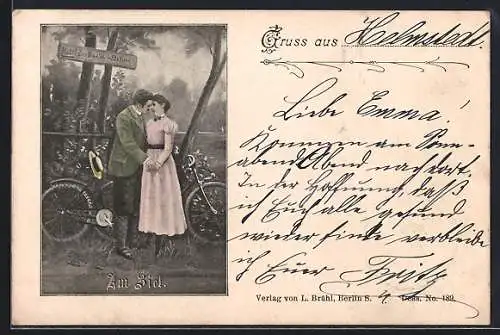 Gruss aus Helmstedt.
Liebe Emma!
Kommen am Sonn-
abend Abend nach dort,
In der Hoffnung, daß
ich Euch alle gesund
wieder finde, verbleibe
ich Euer Fritz
Am Ziel.
Verlag von L. Brühl, Berlin S. Dess. No. 189.